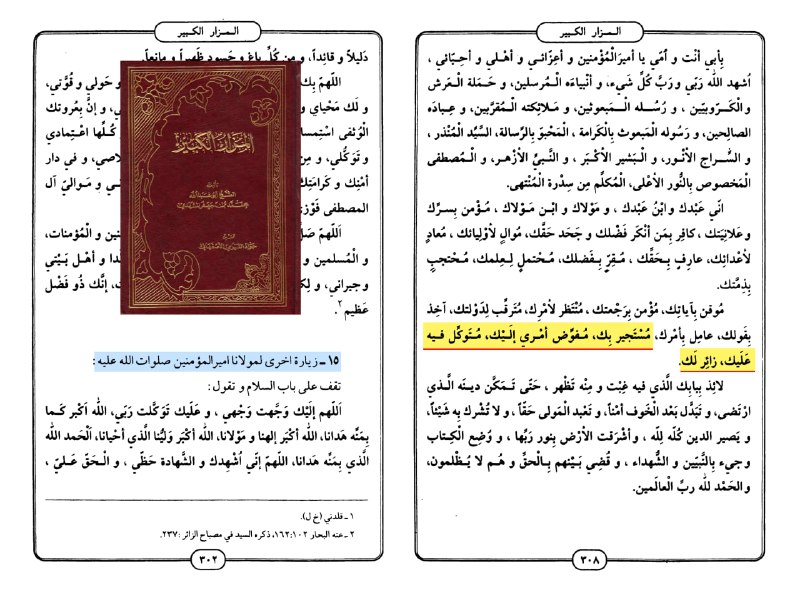 الـمـزار الكـبير
بِأبي أنْت و اُمّي يا أميرَالمُؤْمنين و أعِزّائـي و أهْـلي و أحِبّائي ،
اُشهِد الله رَبّي و رَبَّ كُلِّ شَيء، و أنْبياءَه الْـمُرسلين، و حَمَلة الْعَرش
و الْكَـرّوبيّين ، و رُسُـله الْـمَبعوثين، و مَـلائِكته الْـمُقرّبين، و عِـبادَه
الصالِحين، و رَسُوله الْمَبعوث بِالْكَرامة ، الْمَحْبوّ بِالرِّسالة، السيِّد الْمُنْذر ،
و السُّـراج الأنْـور، و الْـبَشير الأكْـبَر ، و النَّـبيِّ الأزهَـر، و الْـمُصطفى
الْمَخصوص بِالنُّور الأعْلى، الْمُكلِّم مِن سِدْرة الْمُنْتَهى.
انّي عَبْدك و ابْنُ عَبْدك ، و مَوْلاك و ابْـن مَـوْلاك ، مُـؤْمن بِسـرِّك
و عَلانِيَتك ، كافِر بِمَن أنْكَر فَضْلك و جَحَد حَقَّك، مُوالٍ لأوْلِيائك ، مُعادٍ
لأعْدائِك، عارِفٍ بِحَقِّك ، مُـقِرّ بِـفَضلك، مُـحْتملٍ لِـعِلمك، مُـحْتجبٍ
بِذِمَّتك.
مُوقِن بِآياتِك، مُؤْمن بِرَجعتك ، مُنْتَظر لأمْرِك، مُتَرقّب لِدَوْلتك، آخِذ
بِقَولك، عامِل بِأمْرك، مُسْتَجير بِك، مُـفوِّض أمْري إلَيْك، مُـتَوكِّل فـيه
عَلَيك، زائِر لَك.
لائِذ بِبابك الَّذي فيه غِبْت و مِنْه تَظْهر ، حَتّى تَـمَكّن دينَـه الَّـذي
ارْتَضى، و تَبَدَّل بَعْد الْخَوف أمْناً، و تَعْبد الْمَولى حَقّاً ، و لا تُشْرك بِه شَيْئاً،
و يَصير الدين كُلّه لِلّه ، و أشْرَقت الأرْضِ بِنور رَبِّها ، و وُضِع الْكِـتاب
وجيء بِالنَّبيّين و الشُّهداء ، و قُضي بَيْنهم بِـالْحقِّ و هُـم لا يُـظْلمون،
والحَمْد لله ربِّ الْعالَمين.
٣٠٨
الـمـزار الكـبير
دَليلاً و قائِداً، و مِن كُلِّ باغٍ و حَسود ظَهيراً و مانِعاً.
اللهمّ بِك
و حَولي و قُوَّتي،
و لَك مَحْياي و
، و إنَّ بِعُروتك
الْوُثْقى اسْتِمسا
كُـلِّها اعْـتِمادي
و تَوَكُّلي ، و مِن
لاصي، و في دار
أمْنِك و كَرامَتِك
ـي ، و مَـواليّ آل
المصطفى فَوْزي
اَللهمّ صَلِّ
ـنين و الْمُؤمنات،
و الْمُسلمين و
ـدا و أهْـل بَـيْتي
وجيراني ، و لِكـ
، إنَّك ذُو فَضْل
عَظيم ٢.
المزار الكبير
تأليف
الشيخ ابو عبد الله
محمد بن جعفر المشهدي
١٥ ـ زيارة اخرى لمولانا اميرالمؤمنين صلوات الله عليه :
تقف على باب السلام و تقول :
اَللهم إلَيْك وَجَّهت وَجْهي ، و عَلَيك تَوَكَّلت رَبّي، الله أكْبَر كَـما
بِمَنِّه هَدانا، الله أكْبَر إلهنا و مَوْلانا، الله أكْبَر وَلِيُّنا الَّذي أحْيانا، اَلْحَمد الله
الَّذي بِمَنِّه هَدانا، اللهمّ إنّي اُشْهِدك و الشَّهادة حَظّي ، و الْـحَقّ عَـليّ ،
١ ـ قلدني (خ ل).
٢ ـ عنه البحار ١٠٢:١٦٢، ذكره السيد في مصباح الزائر :٢٣٧.
٣٠٢